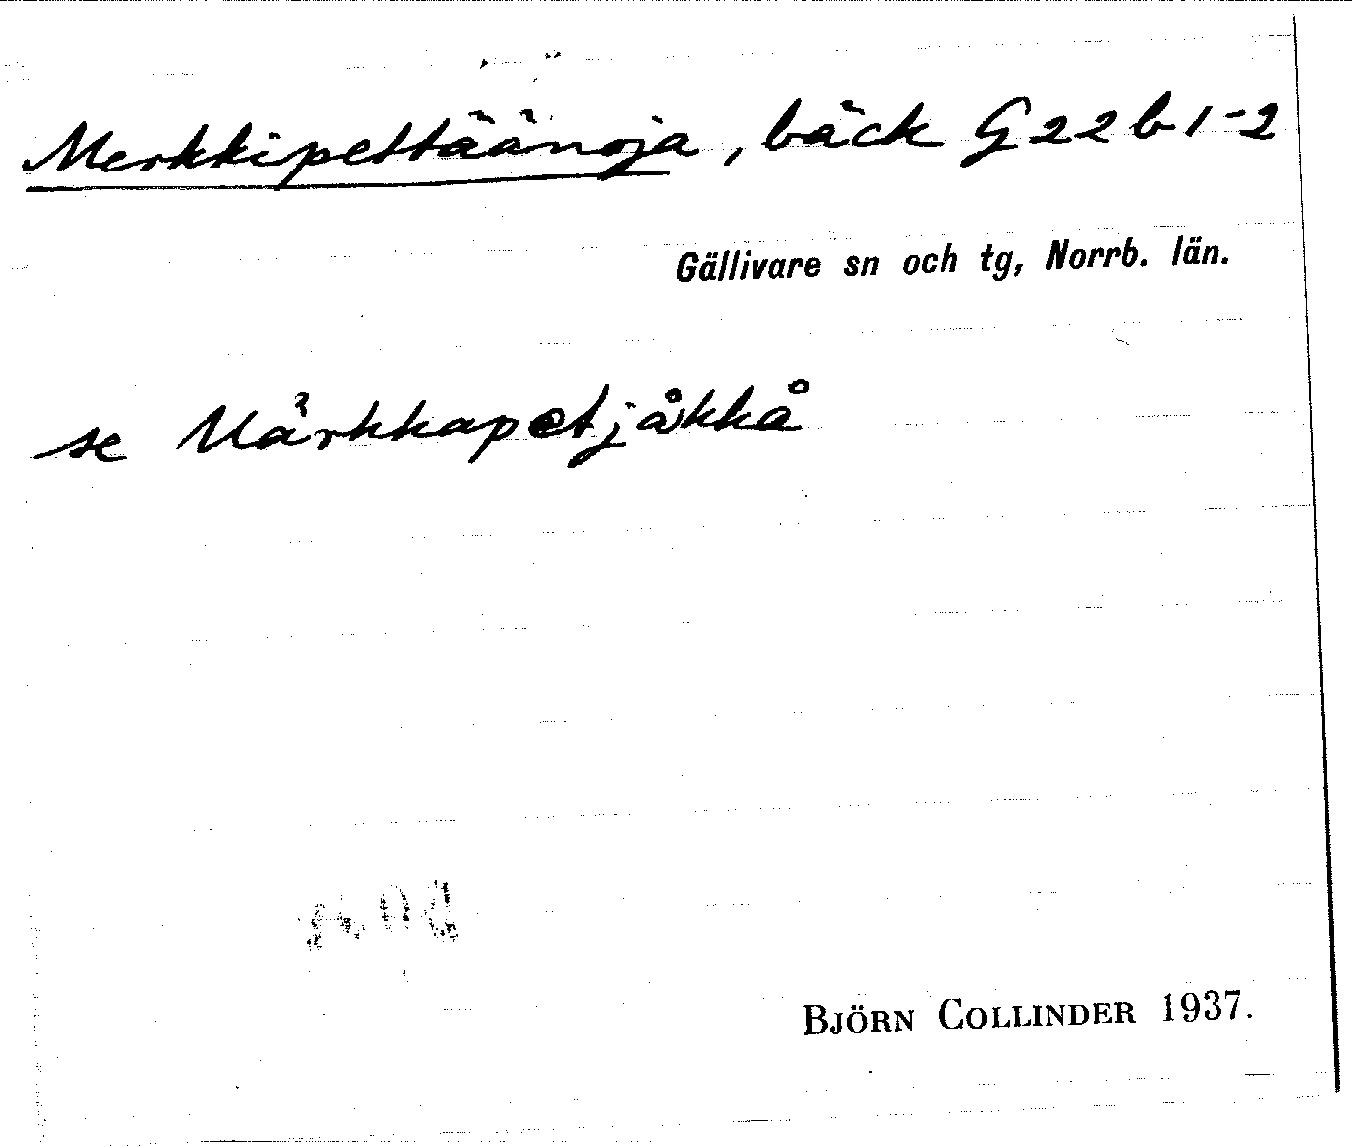 Merkkipettäänoja, bäck G 22 b 1-2
Gällivare sn och tg, Norrb. län.
se Mårkkapetjåkkå
BJÖRN COLLINDER 1937.